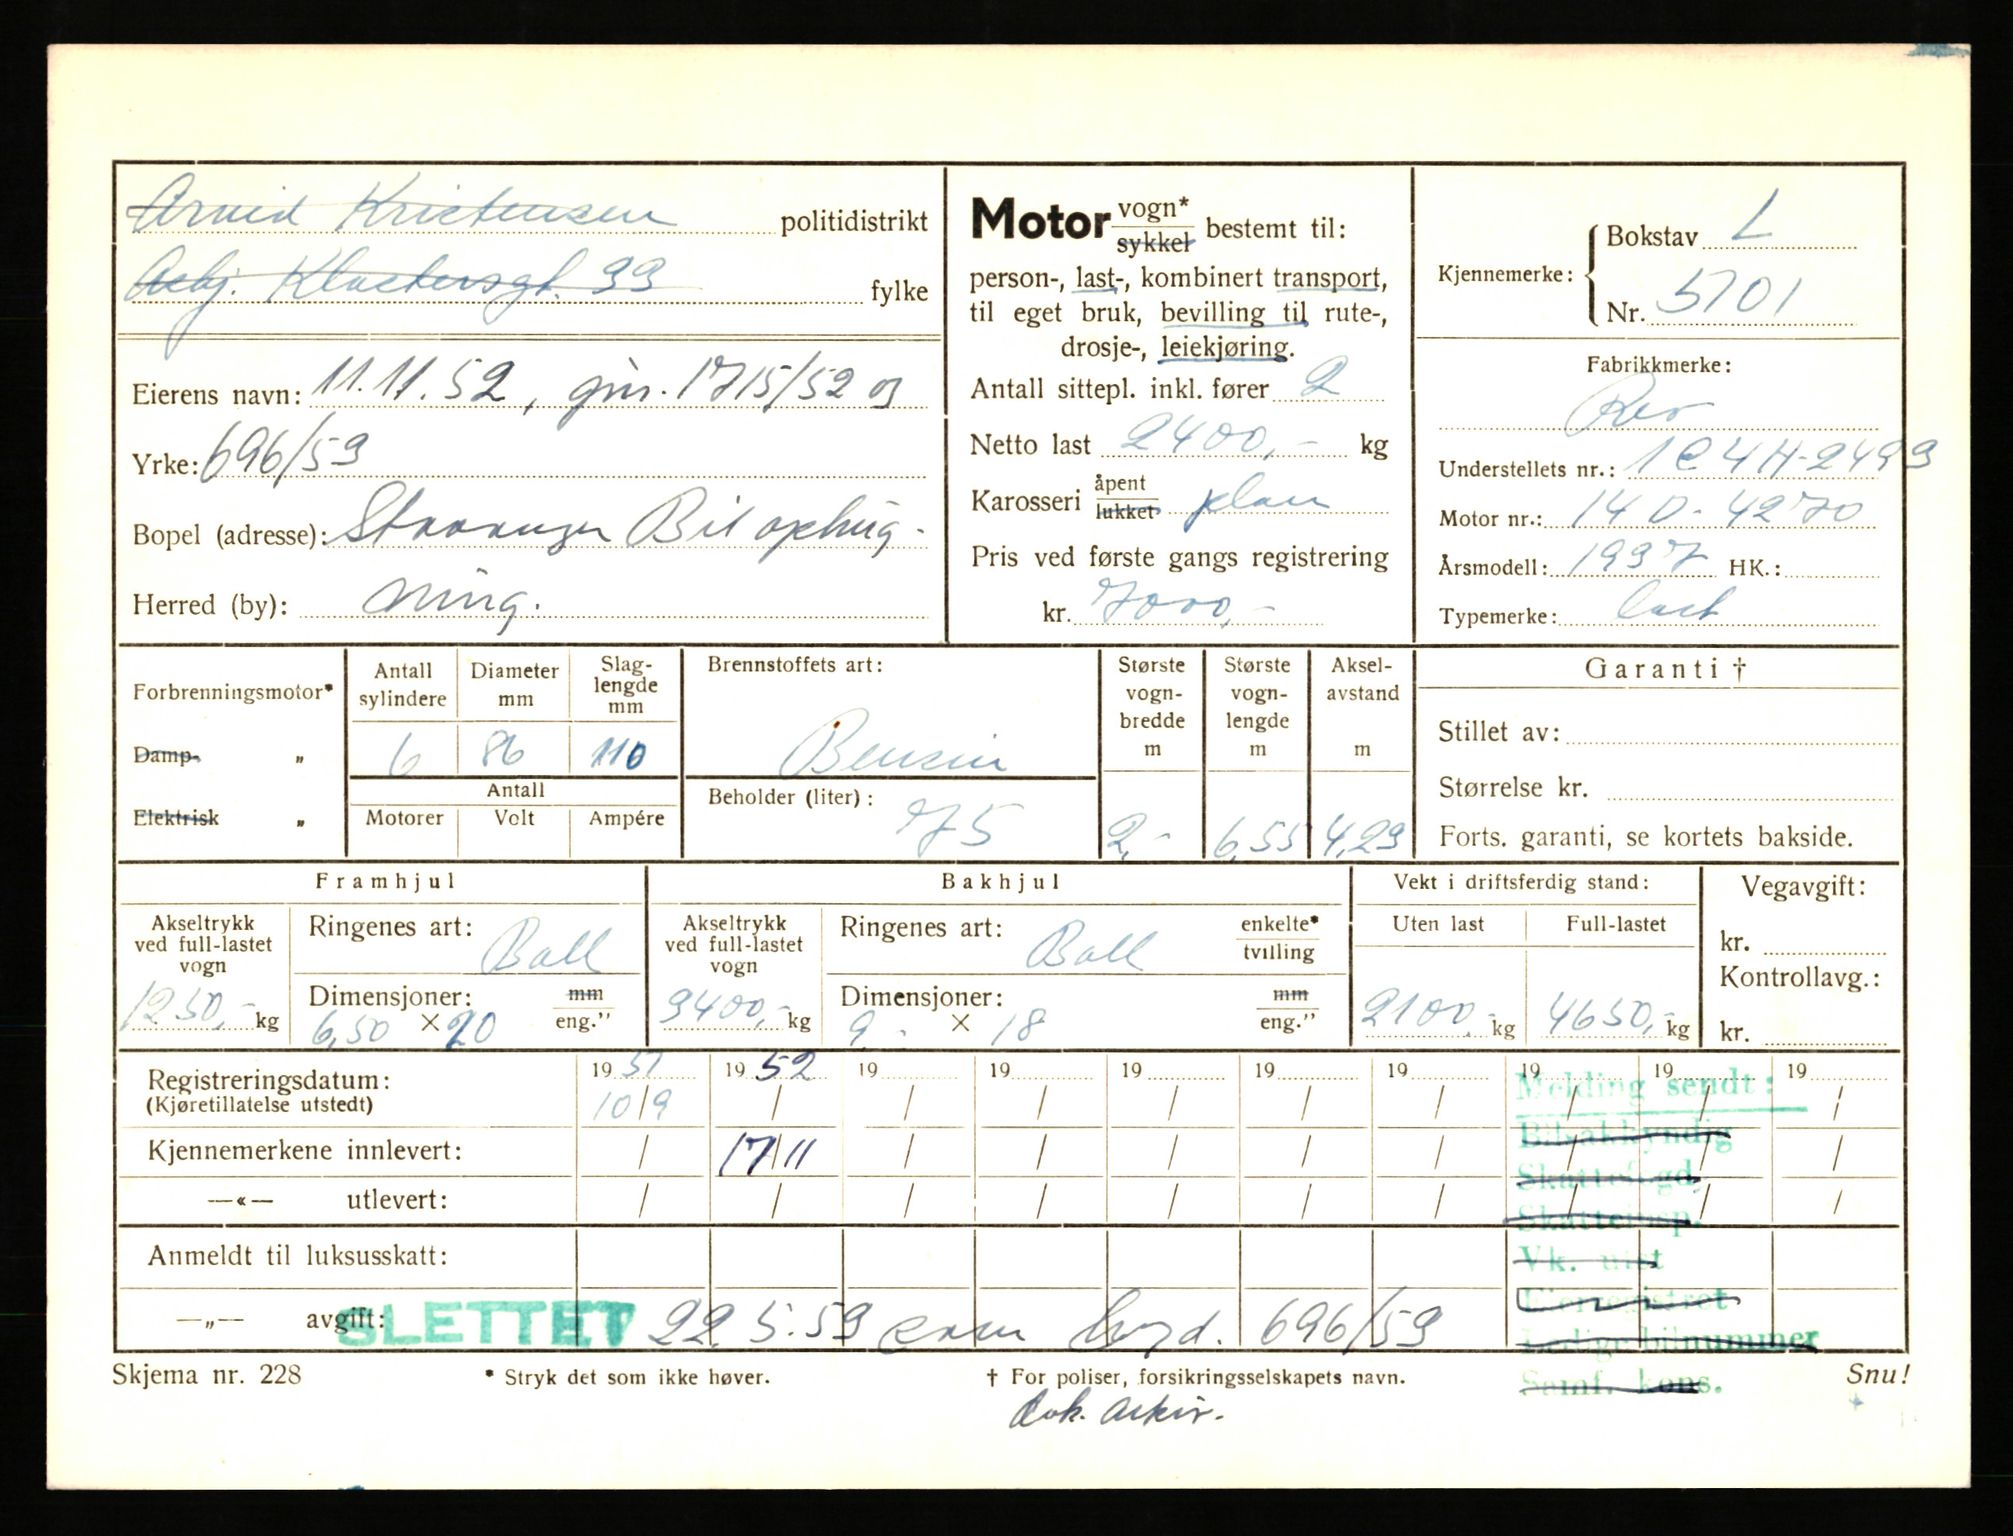 Arvid Kristensen politidistrikt
Asbj. Klostersgt. 33 fylke
Eierens navn: 11.11.52, jnr. 1715/52 og
Yrke: 696/53
Bopel (adresse): Stavanger Bilophug-
Herred (by): ning.
Motor vogn* sykkel bestemt til:
person-, last-, kombinert transport,
til eget bruk, bevilling til rute-,
drosje-, leiekjøring.
Antall sittepl. inkl. fører 2
Netto last 2400,- kg
Karosseri åpent lukket plan
Pris ved første gangs registrering
kr. 7000,-
Kjennemerke: Bokstav L
Nr. 5701
Fabrikkmerke:
Reo
Understellets nr.: 1C4H-2493
Motor nr.: 14D-4270
Årsmodell: 1937 HK.:
Typemerke: Last
Forbrenningsmotor*
Damp- „
Elektrisk „
Antall sylindere 6
Diameter mm 86
Slag-lengde mm 110
Antall
Motorer Volt Ampére
Brennstoffets art:
Bensin
Beholder (liter): 75
Største vogn-bredde m 2,-
Største vogn-lengde m 6,55
Aksel-avstand m 4,23
Garanti †
Stillet av:
Størrelse kr.
Forts. garanti, se kortets bakside.
Framhjul
Akseltrykk ved full-lastet vogn 1250,- kg
Ringenes art: Ball
Dimensjoner: mm eng."
6,50 × 20
Bakhjul
Akseltrykk ved full-lastet vogn 3400,- kg
Ringenes art: Ball enkelte* tvilling
Dimensjoner: mm eng."
9 - × 18
Vekt i driftsferdig stand:
Uten last 2100,- kg
Full-lastet 4650,- kg
Vegavgift:
kr.
Kontrollavg.:
kr.
Registreringsdatum: 1951 1952 19 19 19 19 19 19 19 19
(Kjøretillatelse utstedt) 10/9 / / / / / / / / /
Kjennemerkene innlevert: / 17/11 / / / / / / / /
—«— utlevert: / / / / / / / / / /
Anmeldt til luksusskatt:
—„— avgift:
SLETTET 22.5.53 som 696/53
Melding sendt:
Bilsakkyndig
Skattefogd.
Skatteinsp.
Vk. 
Ledige bilnummer
Samf. kons.
Skjema nr. 228
* Stryk det som ikke høver.
† For poliser, forsikringsselskapets navn.
Snu!
dok. arkiv.